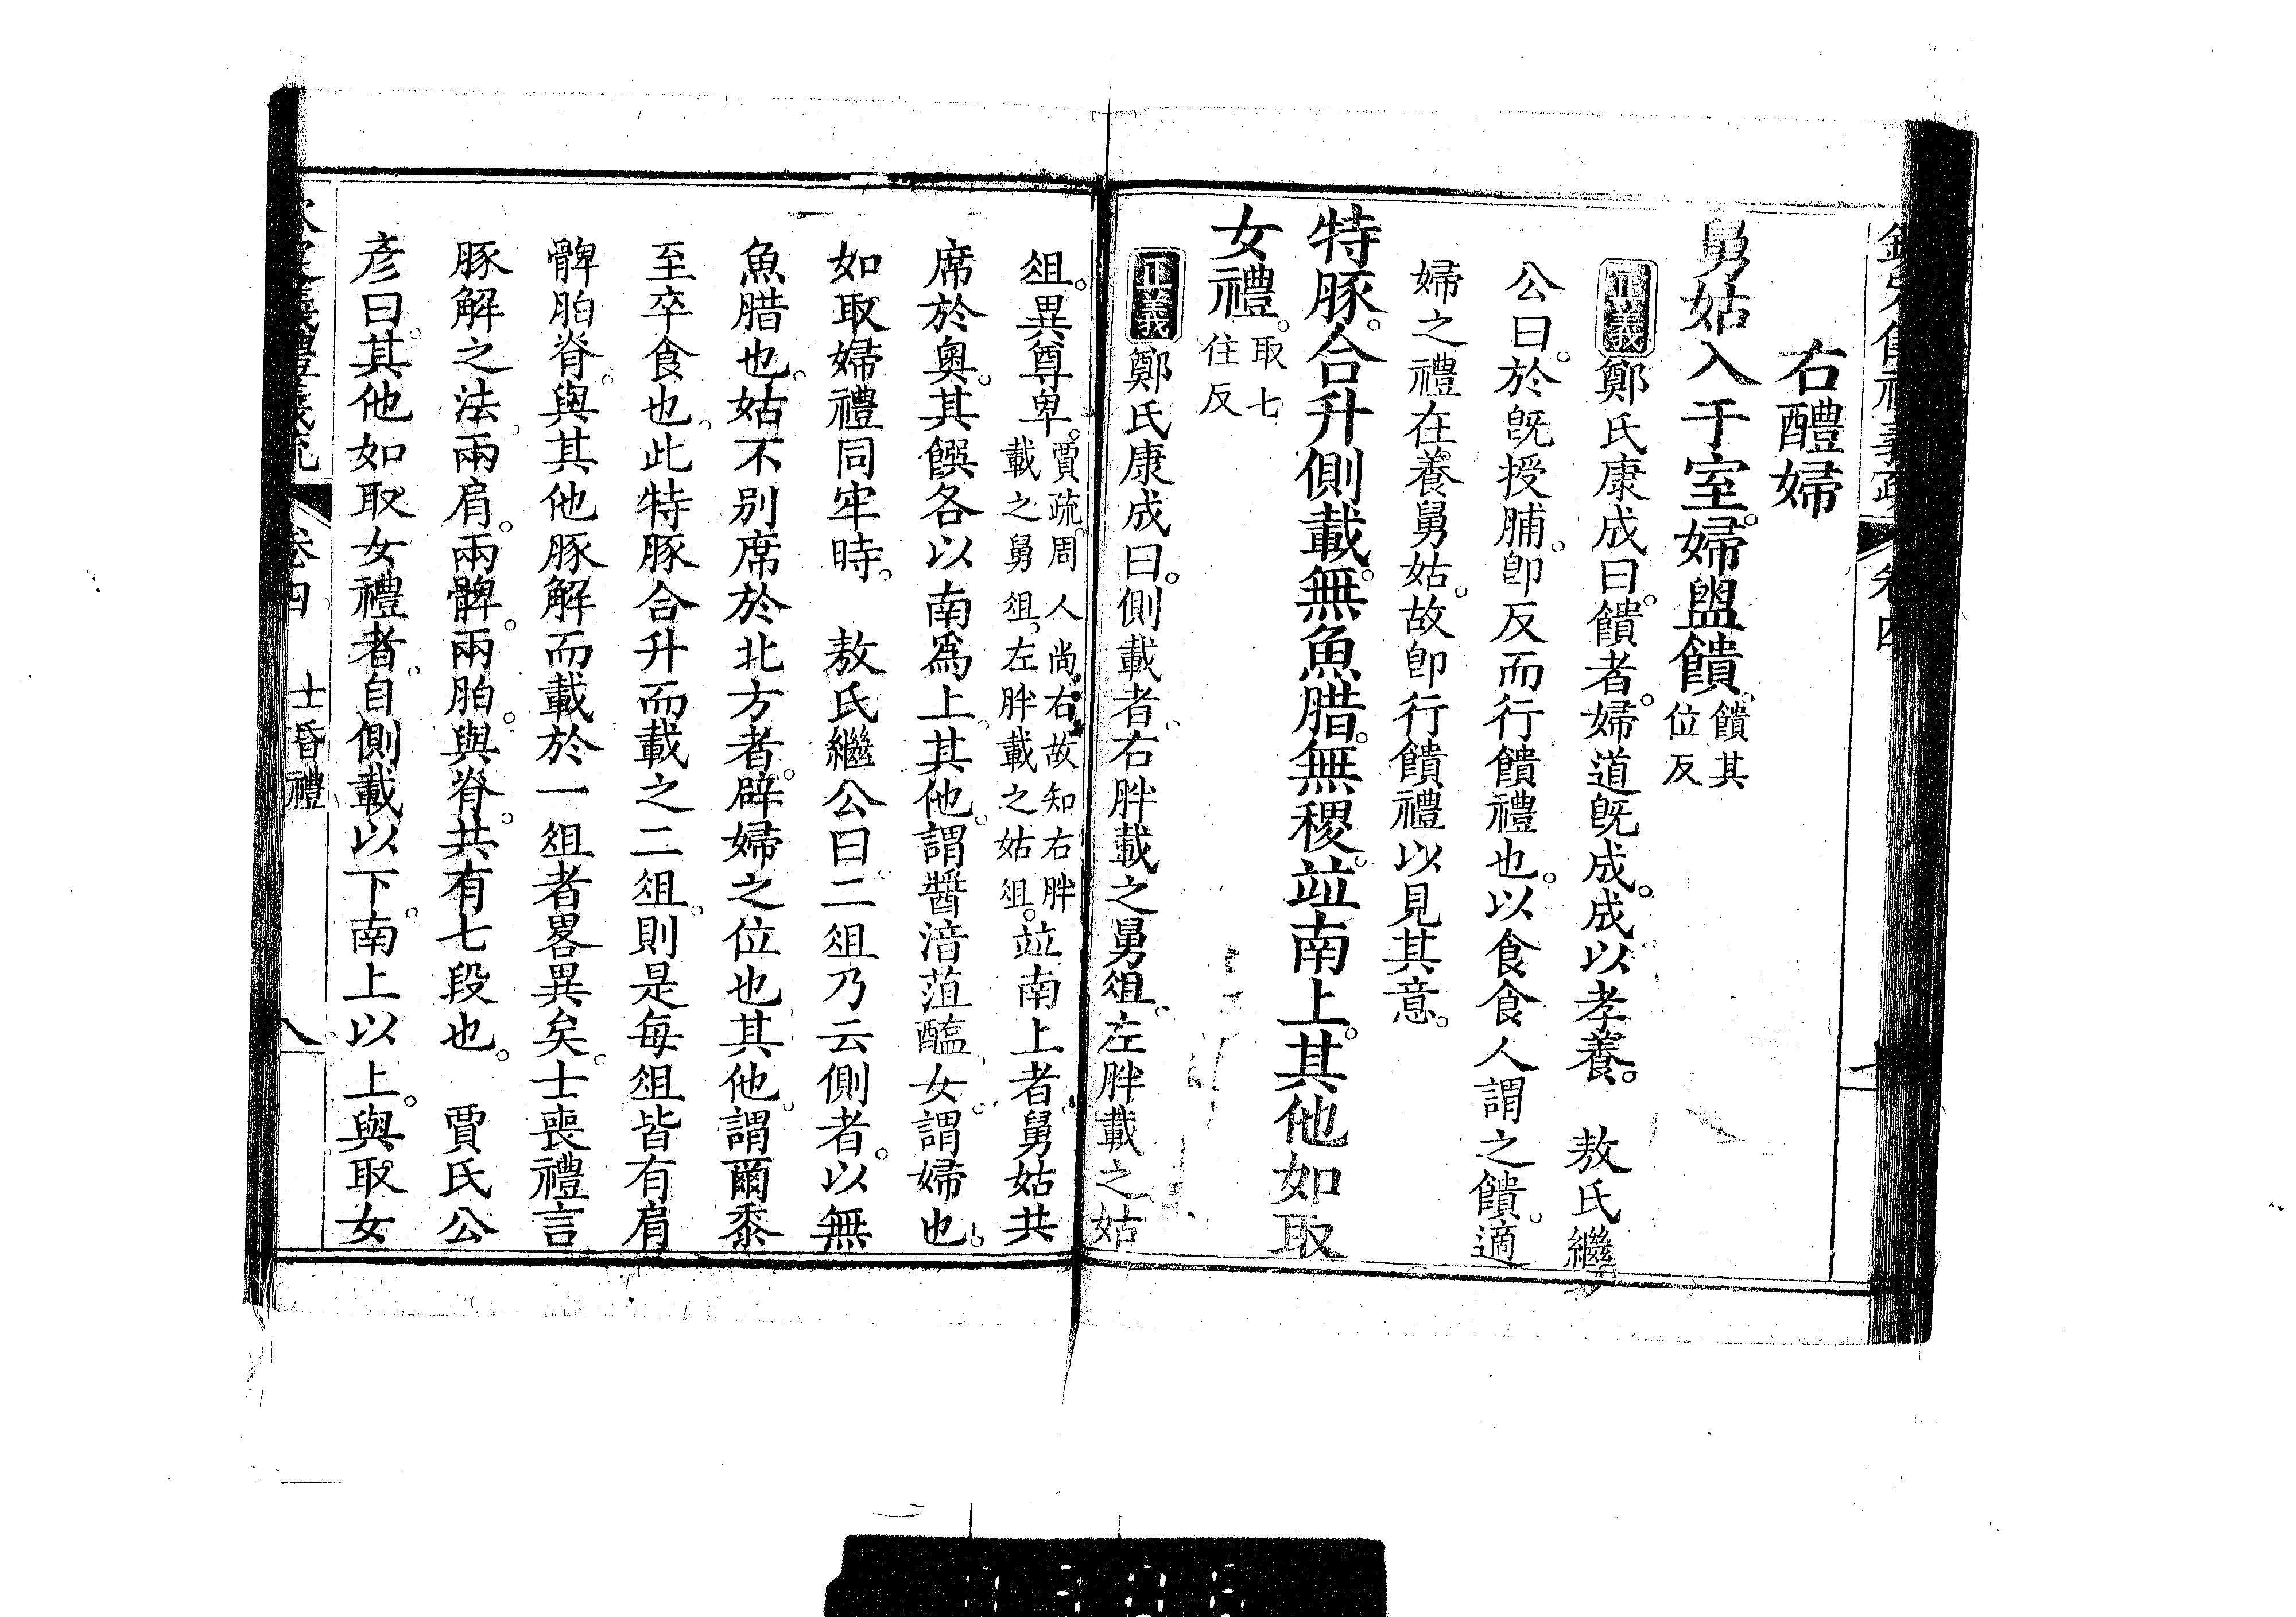 右醴婦
舅姑入于室。婦盥饋。饋其位反
正義鄭氏康成曰。饋者。婦道旣成。成以孝養。　敖氏繼
公曰。於旣授脯。卽反而行饋禮也。以食食人謂之饋。適
婦之禮在養舅姑。故卽行饋禮以見其意。
特豚。合升側載。無魚腊。無稷。竝南上。其他如取
女禮。取七住反
正義鄭氏康成曰。側載者。右胖載之舅俎。左胖載之姑
俎。異尊卑。賈疏。周人尚右。故知右胖載之舅俎。左胖載之姑俎。竝南上者。舅姑共
席於奧。其饌各以南爲上。其他。謂醬湆菹醢。女。謂婦也。
如取婦禮同牢時。　敖氏繼公曰。二俎乃云側者。以無
魚腊也。姑不別席於北方者。辟婦之位也。其他。謂爾黍
至卒食也。此特豚合升而載之二俎。則是每俎皆有肩
髀胉脊。與其他豚解而載於一俎者畧異矣。士喪禮言
豚解之法。兩肩。兩髀。兩胉。與脊。共有七段也。　賈氏公
彥曰。其他如取女禮者。自側載以下。南上以上。與取女
義禮義疏　卷四　士昏禮　八